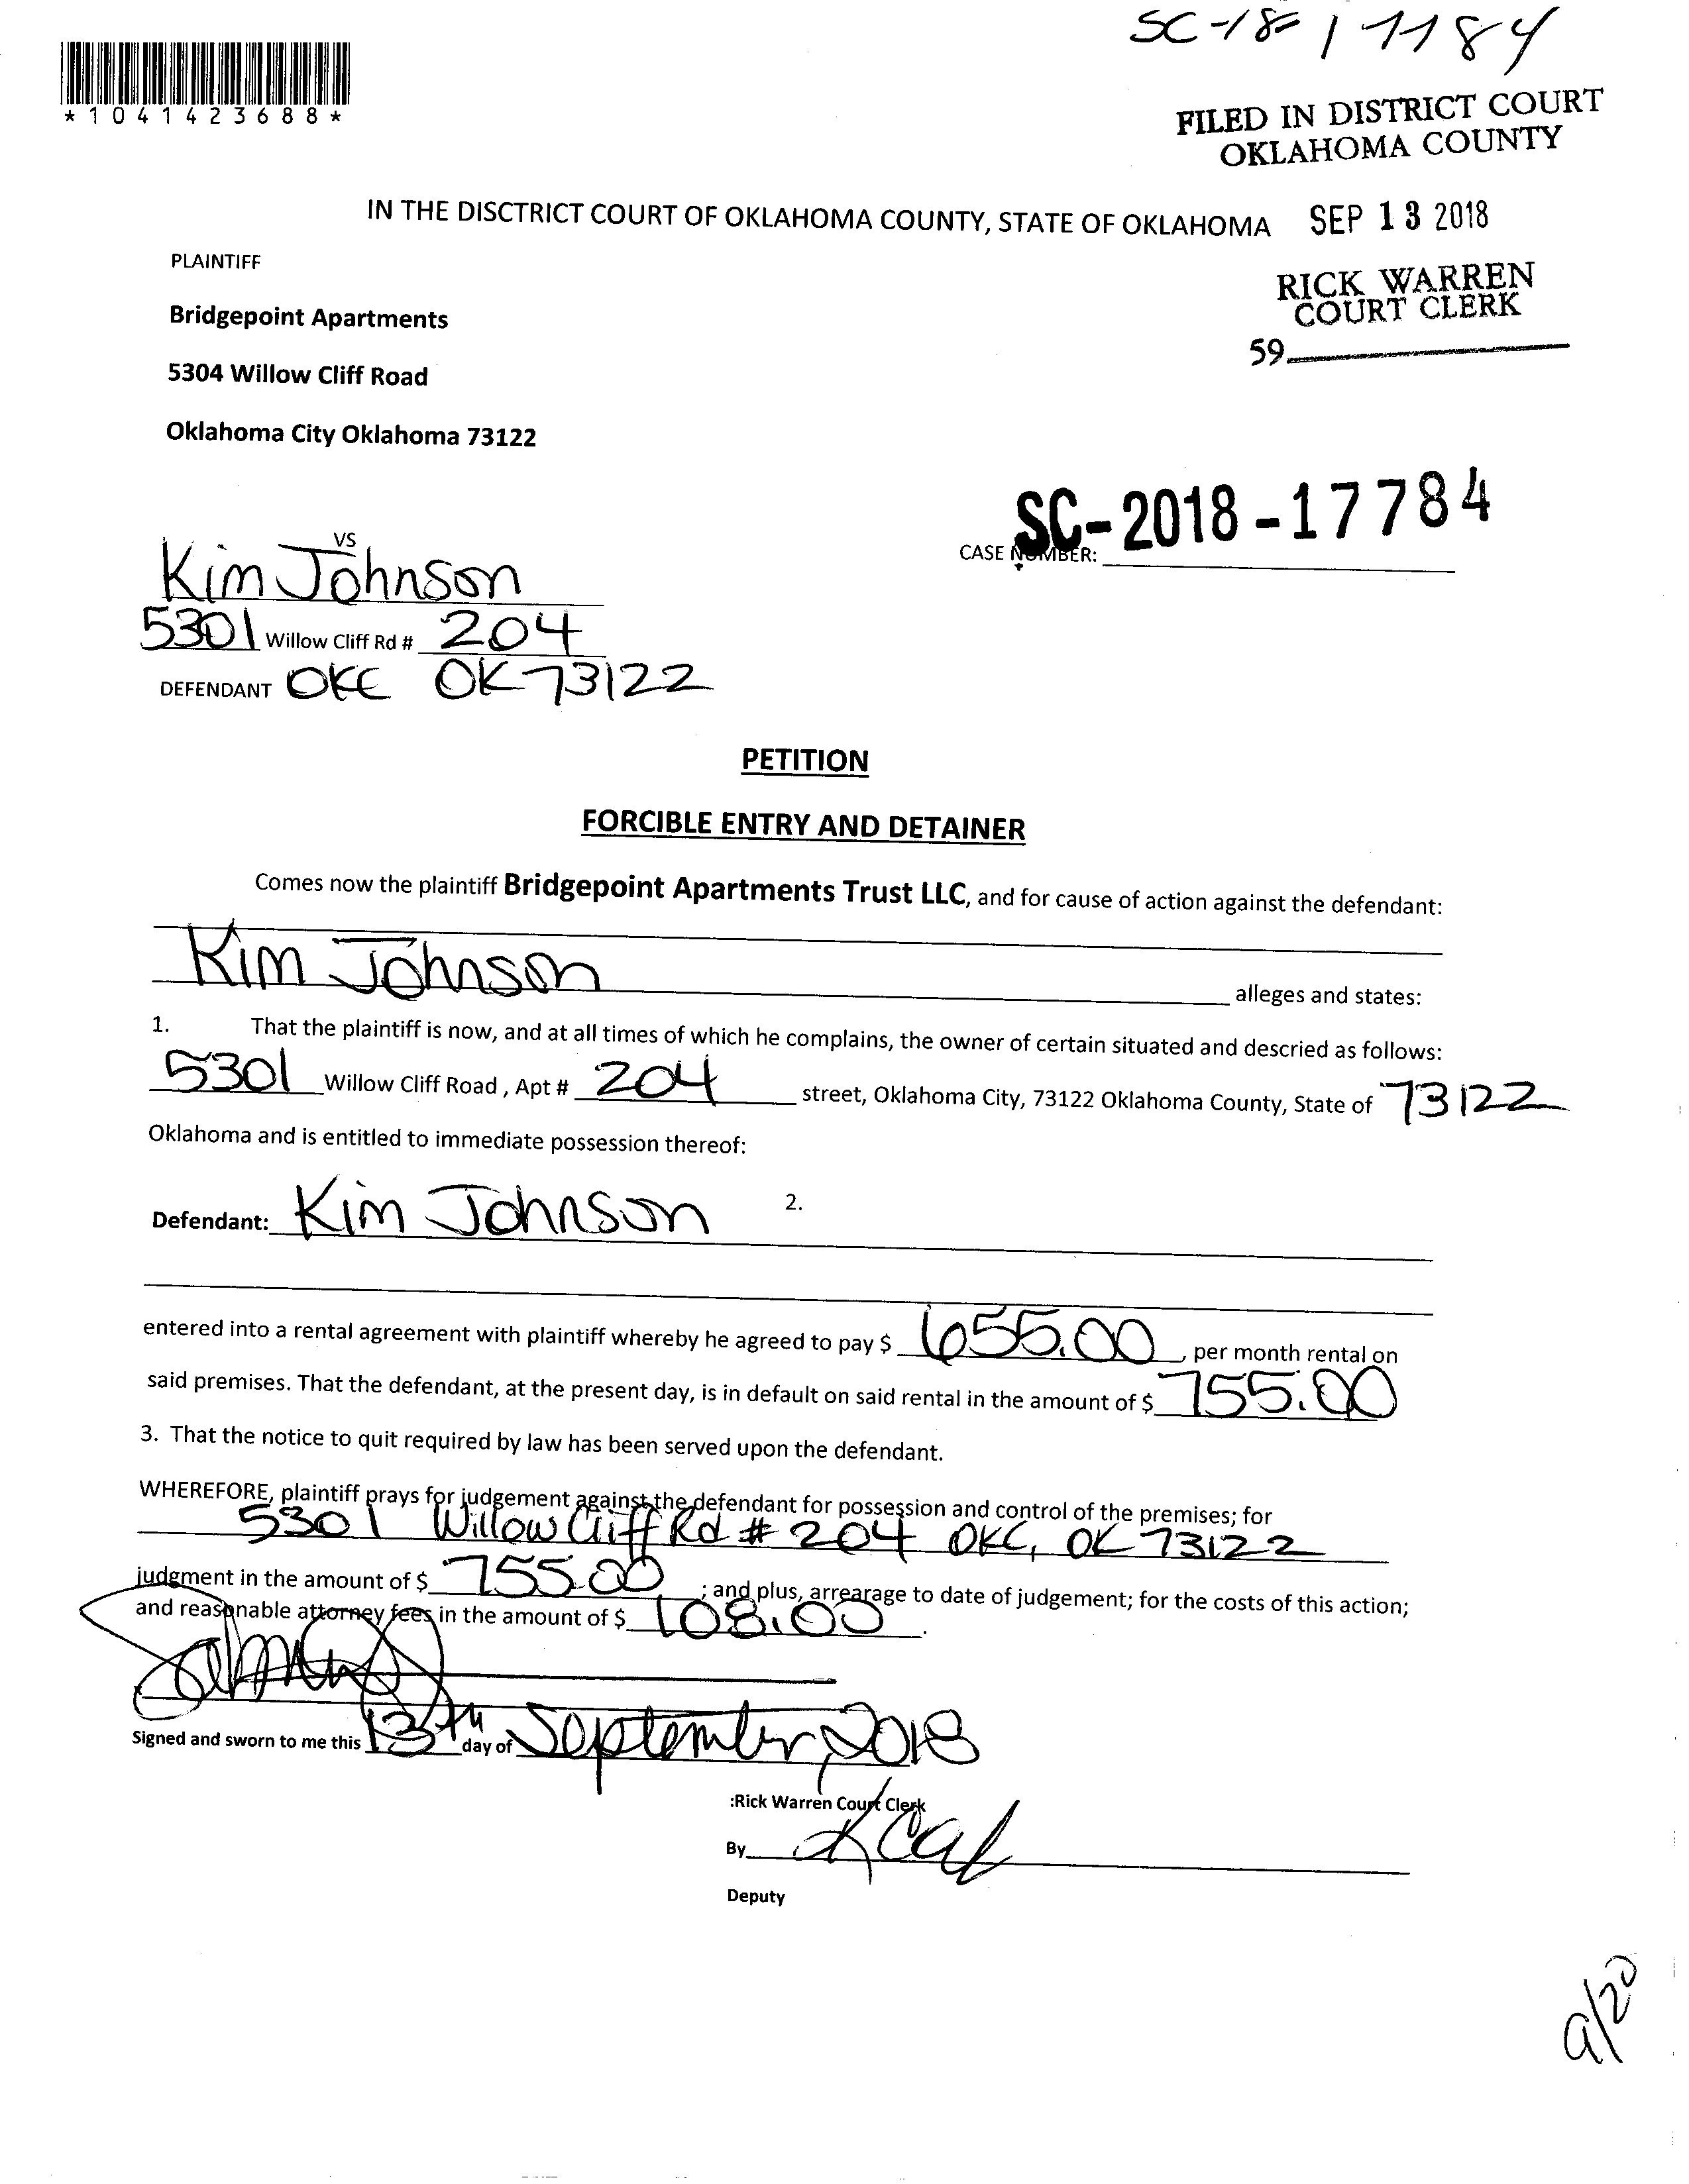 SC-18-17784
*1041423688*
FILED IN DISTRICT COURT
OKLAHOMA COUNTY
IN THE DISCTRICT COURT OF OKLAHOMA COUNTY, STATE OF OKLAHOMA SEP 13 2018
PLAINTIFF
RICK WARREN
COURT CLERK
Bridgepoint Apartments
59
5304 Willow Cliff Road
Oklahoma City Oklahoma 73122
VS
CASE NUMBER: SC-2018-17784
Kim Johnson
5301 Willow Cliff Rd # 204
DEFENDANT OKC OK 73122
PETITION
FORCIBLE ENTRY AND DETAINER
Comes now the plaintiff Bridgepoint Apartments Trust LLC, and for cause of action against the defendant:
Kim Johnson alleges and states:
1. That the plaintiff is now, and at all times of which he complains, the owner of certain situated and descried as follows:
5301 Willow Cliff Road , Apt # 204 street, Oklahoma City, 73122 Oklahoma County, State of 73122
Oklahoma and is entitled to immediate possession thereof:
Defendant: Kim Johnson 2.
entered into a rental agreement with plaintiff whereby he agreed to pay $ 655.00, per month rental on
said premises. That the defendant, at the present day, is in default on said rental in the amount of $ 755.00
3. That the notice to quit required by law has been served upon the defendant.
WHEREFORE, plaintiff prays for judgement against the defendant for possession and control of the premises; for
5301 Willow Cliff Rd # 204 OKC, OK 73122
judgment in the amount of $ 755.00 ; and plus, arrearage to date of judgement; for the costs of this action;
and reasonable attorney fees in the amount of $ 108.00.
Signed and sworn to me this 13th day of September, 2018
:Rick Warren Court Clerk
By
Deputy
9/20